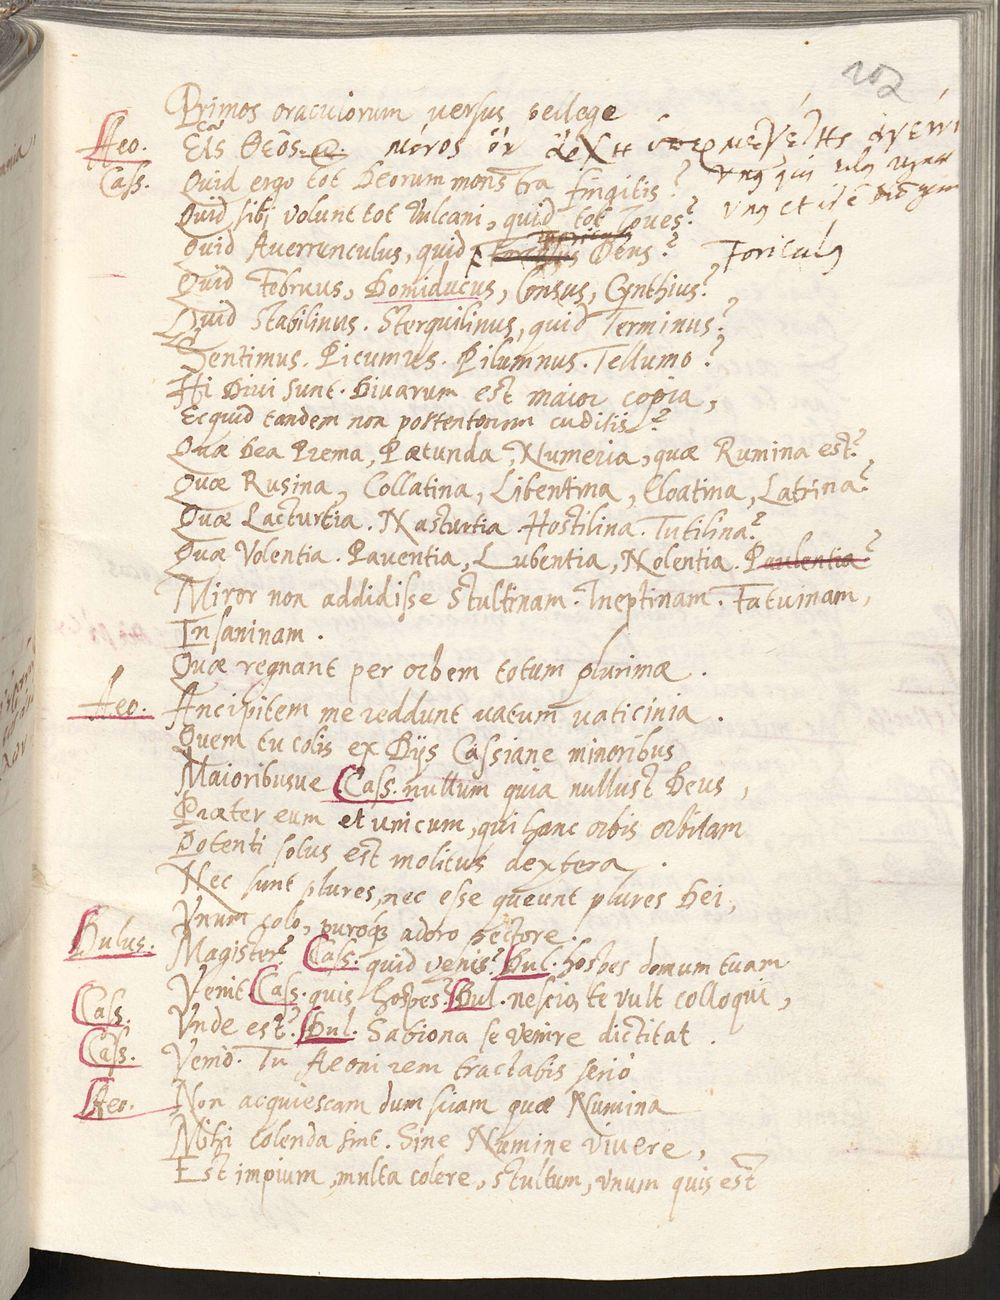 102
Primos oraculorum versus pellege
Aeo. Εἷς Θεὸς μόνος ὢν
Cass. Quid ergo tot Deorum monstra fingitis?
Quid sibi volunt tot Vulcani, quid tot Joves?
Quid Averrunculus, quid Deus? Foriculus
Quid Februus, Domiducus, Consus, Cynthius?
Quid Stabilinus. Sterquilinus, quid Terminus?
Sentimus. Picumus. Pilumnus. Tellumo?
Hi Divi sunt. Divarum est maior copia,
Ecquid tandem non portentorum cuditis?
Quæ Dea Prema, Pætunda, Numeria, quæ Rumina est?
Quæ Rusina, Collatina, Libentina, Cloatina, Latrina?
Quæ Lacturtia. Nasturtia. Hostilina. Tutilina?
Quæ Volentia. Paventia, Lubentia, Nolentia. Paulentia?
Miror non addidisse Stultinam. Ineptinam. Fatuinam,
Insaninam.
Quæ regnant per orbem totum plurimæ.
Aeo. Ancipitem me reddunt vatum vaticinia.
Quem tu colis ex Dijs Cassiane minoribus
Maioribusve Cass. nullum quia nullust Deus,
Præter eum et unicum, qui hanc orbis orbitam
Potenti solus est molitus dextera.
Nec sunt plures, nec esse queunt plures Dei,
Vnum colo, puroq; adoro pectore
Bulus. Magister? Cass. quid venis? Bul. hospes domum tuam
Venit Cass. quis hospes? Bul. nescio, te vult colloqui,
Cass. Vnde est? Bul. Sabiona se venire dictitat.
Cass. Venio. Tu Aeoni rem tractabis serio
Aeo. Non acquiescam dum sciam quæ Numina
Mihi colenda sint. Sine Numine vivere,
Est impium, multa colere, stultum, vnum quis est